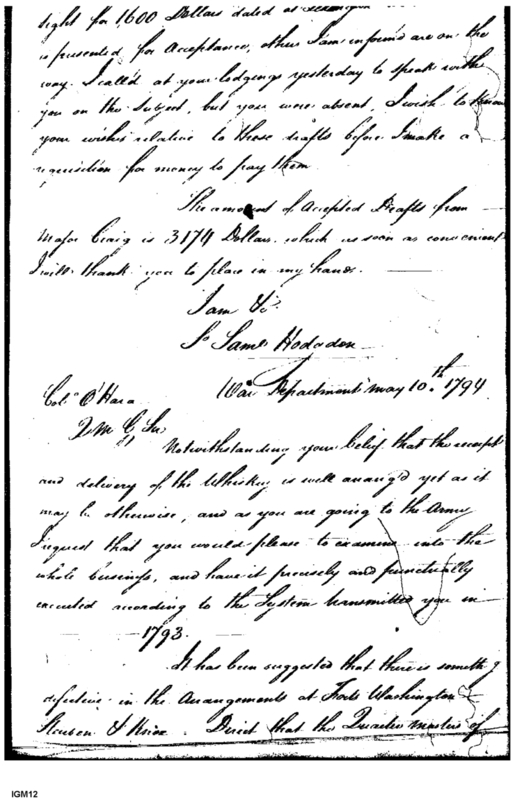 sight for 1600 Dollars dated at
is presented for Acceptance, others I am inform'd are on the
way. I call'd at your lodgings yesterday to speak with
you on the Subject, but you were absent, I wish to know
your wishes relative to those drafts before I make a
requisition for money to pay them.
The amount of Accepted Drafts from
Major Craig is 3174 Dollars which as soon as convenient
I will thank you to place in my hands.
I am &c.
Saml Hodgdon
War Department may 10.th 1794
Colo O'Hara
Q M G
Notwithstanding your belief that the receipt
and delivery of the Whiskey is well arrang'd yet as it
may be otherwise, and as you are going to the Army
I request that you would please to examine into the
whole business, and have it precisely and punctually
executed according to the System transmitted you in
1793.
It has been suggested that there is something
defective in the Arrangements at Forts Washington
Steuben & Knox. Direct that the Quarter masters of
IGM12